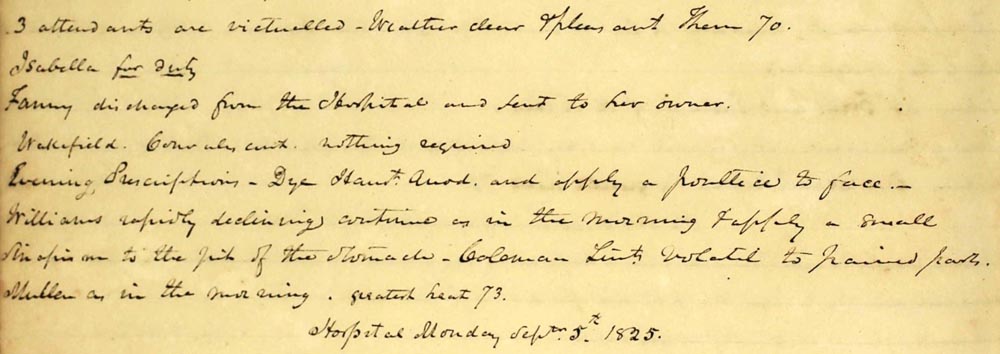 3 attendants are victualled - Weather clear & pleasant Therm 70.
Isabella for duty
Fanny discharged from the Hospital and sent to her owner.
Wakefield. Convalescent. nothing required
Evening Prescriptions - Dye Haust. Anod. and apply a poultice to face. -
Williams rapidly declining, continue as in the morning & apply a small
Sinapism to the pit of the stomach - Coleman Lint. Volatil to pained parts.
Mullen as in the morning. greatest heat 73.
Hospital Monday Septr. 5th. 1825.